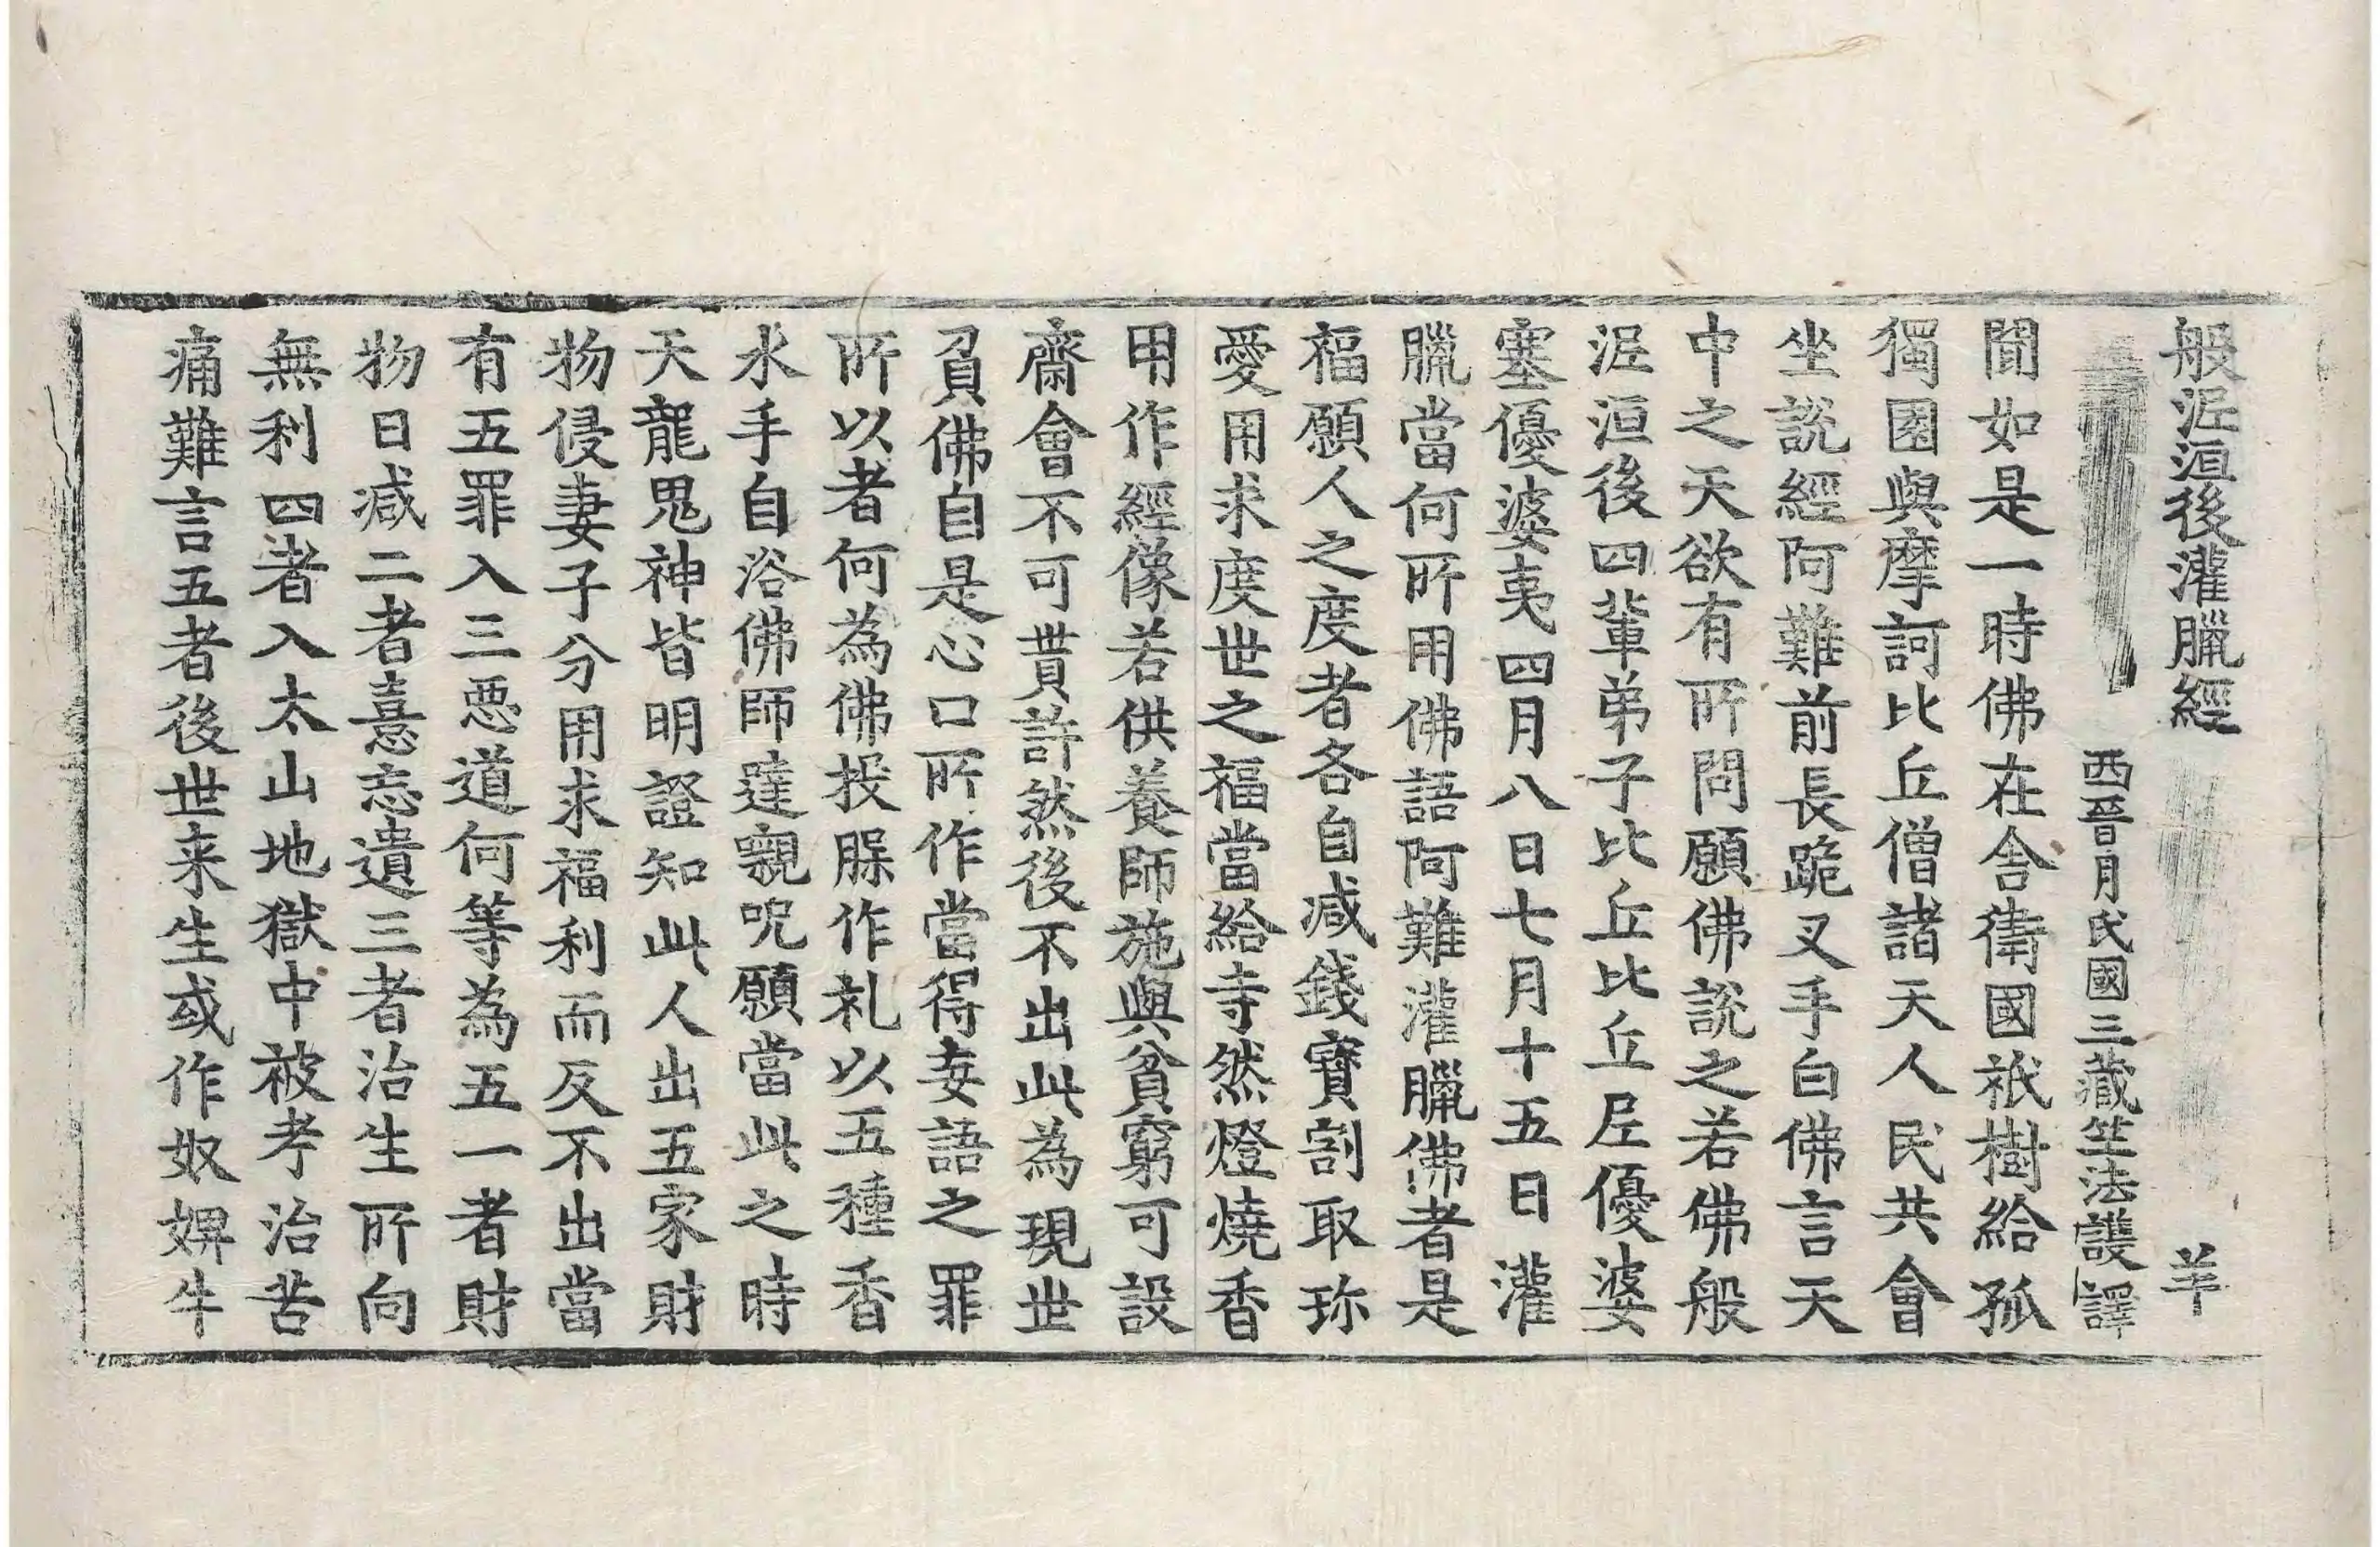 般泥洹後灌臘經 羊
西晉月氏國三藏竺法護譯
聞如是一時佛在舍衛國祇樹給孤
獨園與摩訶比丘僧諸天人民共會
坐說經阿難前長跪叉手白佛言天
中之天欲有所問願佛說之若佛般
泥洹後四輩弟子比丘比丘尼優婆
塞優婆夷四月八日七月十五日灌
臘當何所用佛語阿難灌臘佛者是
福願人之度者各自减錢寶割取珎
愛用求度世之福當給寺然燈燒香
用作經像若供養師施與貧窮可設
齋會不可貰許然後不出此為現世
負佛自是心口所作當得妄語之罪
所以者何為佛投腂作礼以五種香
水手自浴佛師達嚫呪願當此之時
天龍鬼神皆明證知此人出五家財
物侵妻子分用求福利而反不出當
有五罪入三惡道何等為五一者財
物日减二者憙忘遺三者治生所向
無利四者入太山地獄中被考治苦
痛難言五者後世来生或作奴婢牛